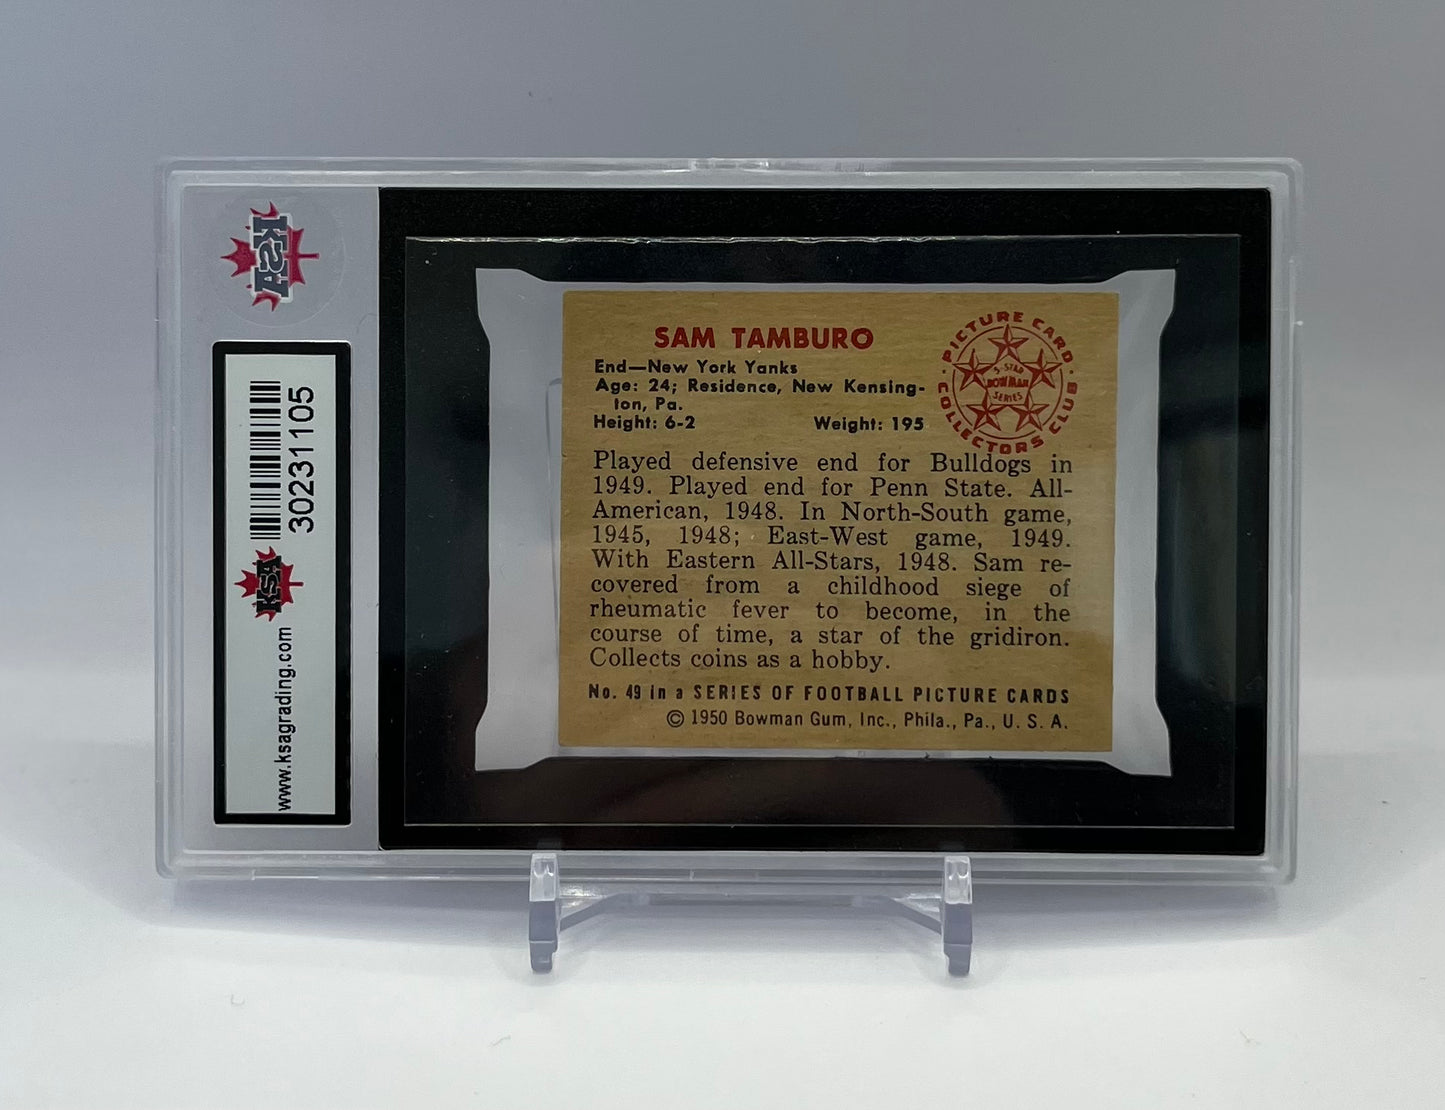 KSA
30231105
KSA
www.ksagrading.com
SAM TAMBURO
End—New York Yanks
Age: 24; Residence, New Kensing-
ton, Pa.
Height: 6-2 Weight: 195
PICTURE CARD
COLLECTORS CLUB
5-STAR
BOWMAN
SERIES
Played defensive end for Bulldogs in
1949. Played end for Penn State. All-
American, 1948. In North-South game,
1945, 1948; East-West game, 1949.
With Eastern All-Stars, 1948. Sam re-
covered from a childhood siege of
rheumatic fever to become, in the
course of time, a star of the gridiron.
Collects coins as a hobby.
No. 49 in a SERIES OF FOOTBALL PICTURE CARDS
© 1950 Bowman Gum, Inc., Phila., Pa., U. S. A.